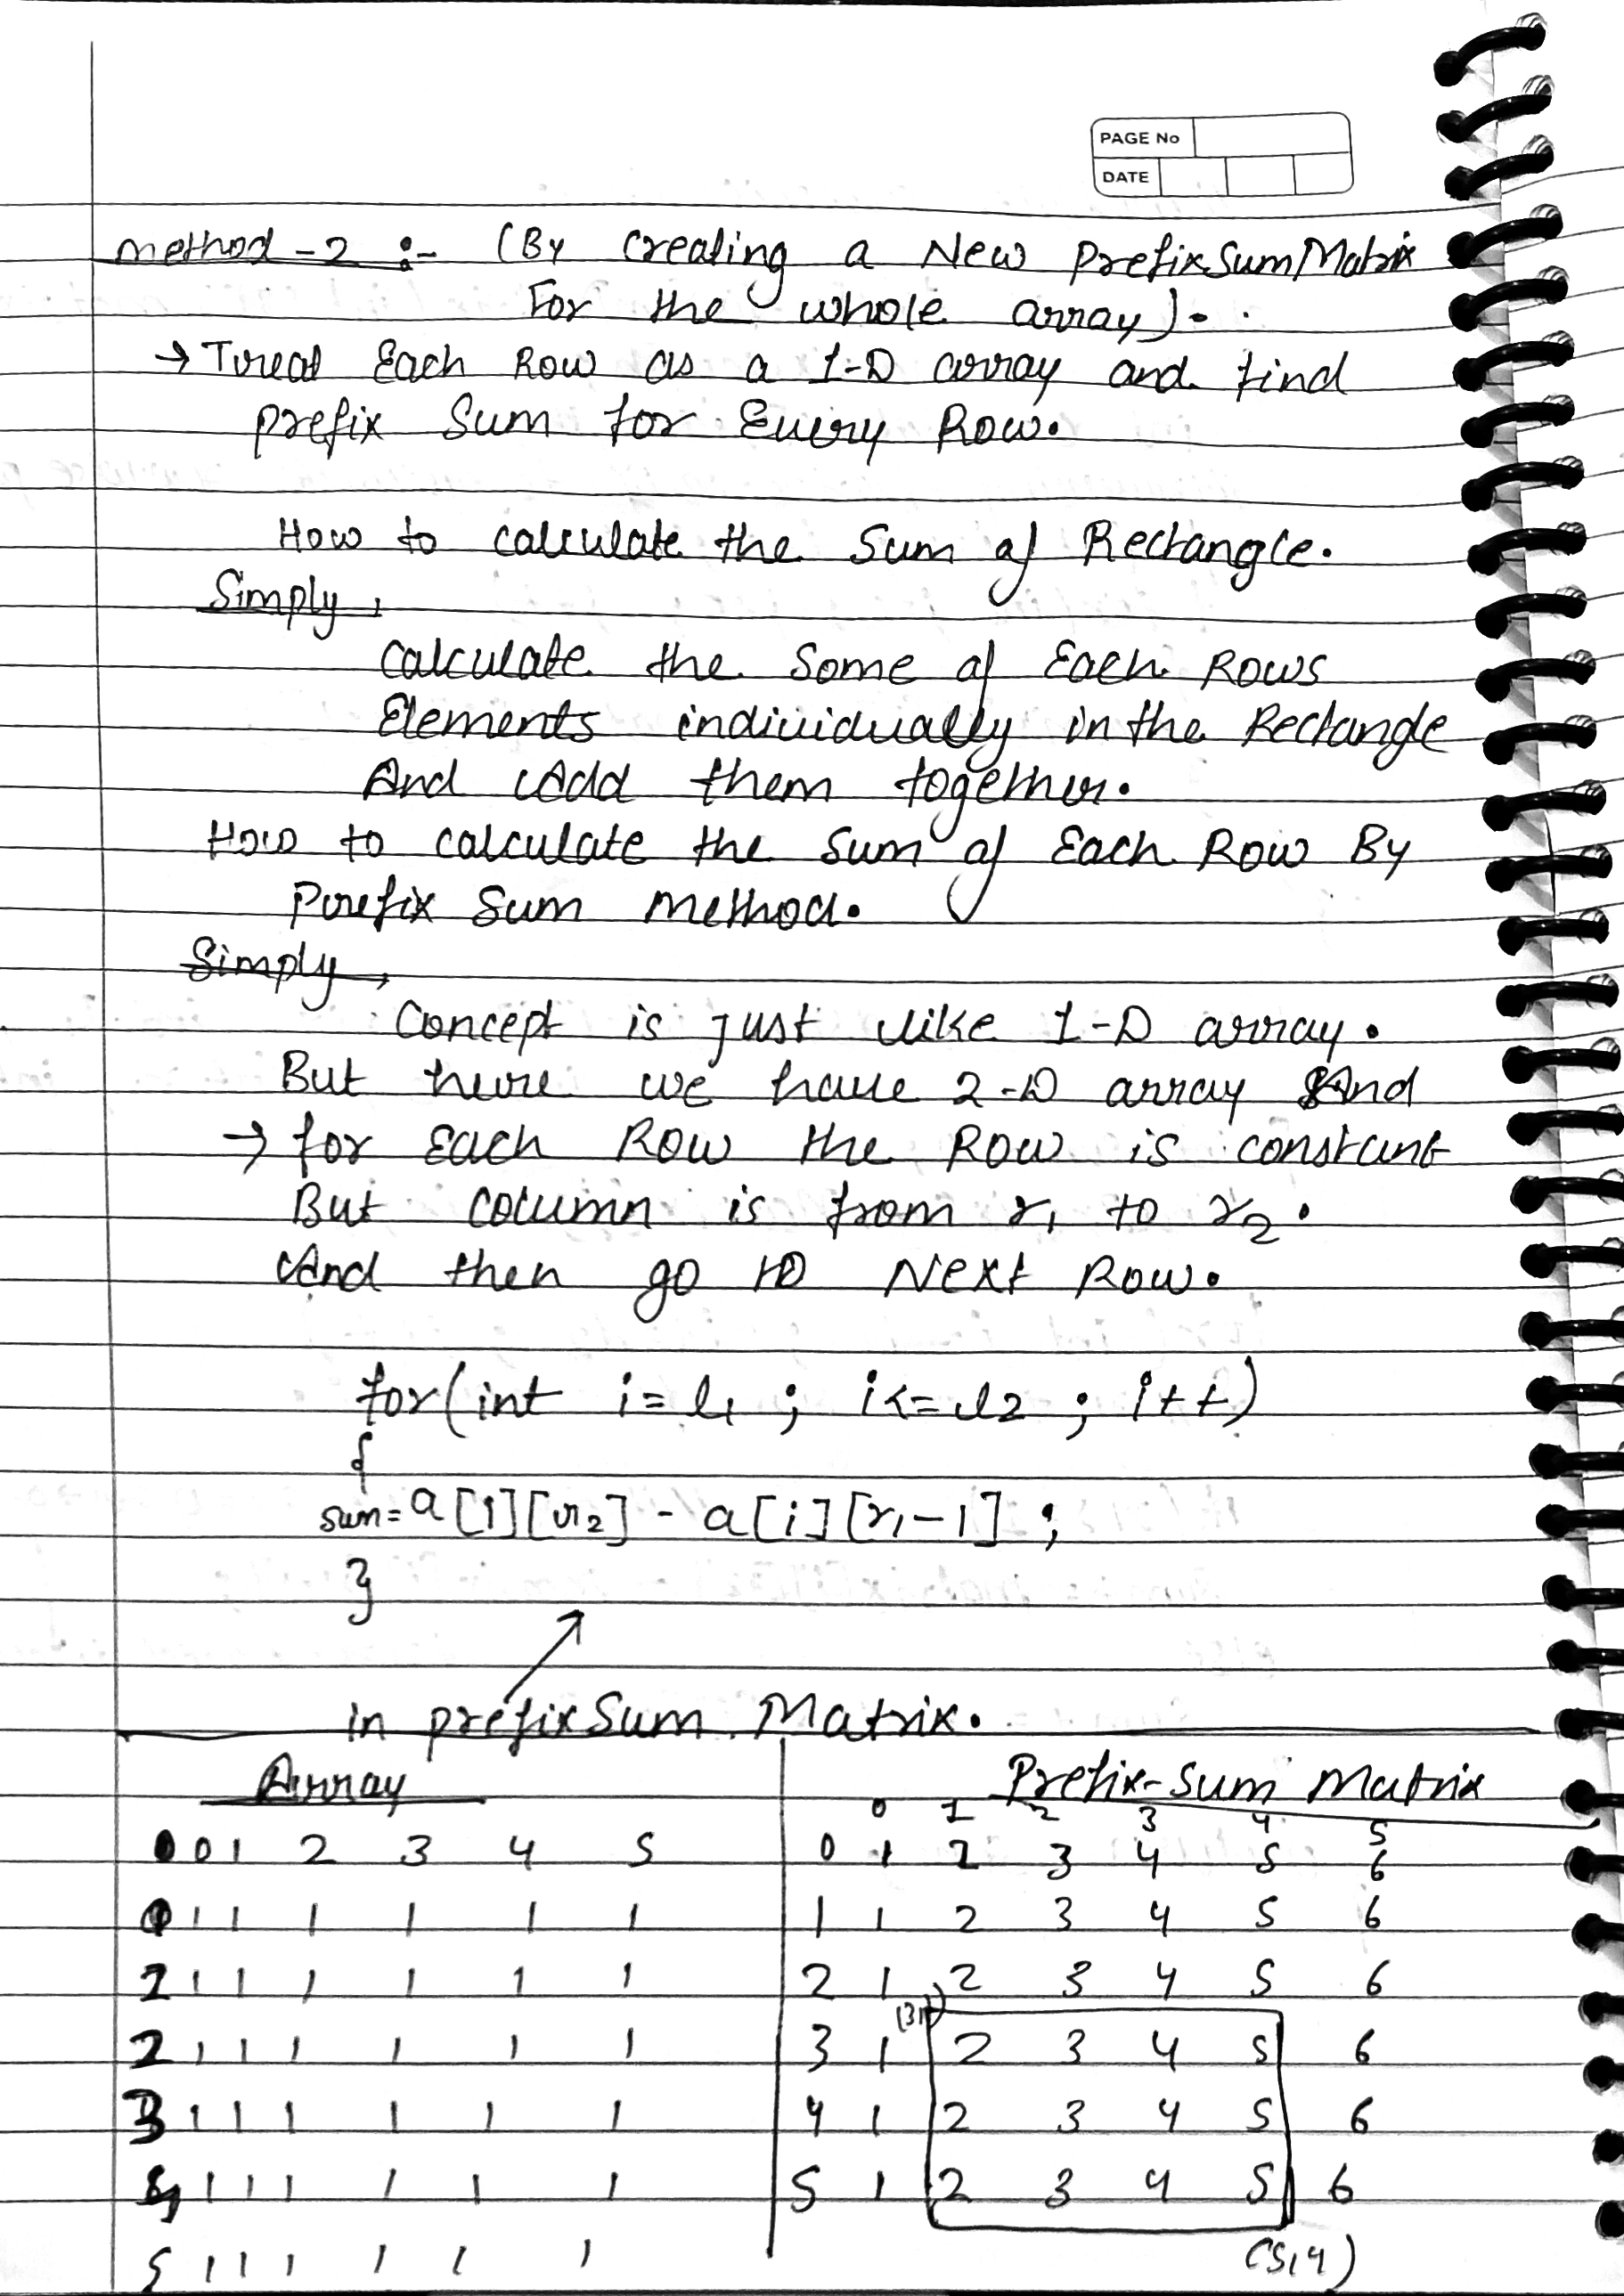 PAGE No
DATE
Method-2 :- (By Creating a New PrefixSumMatrix
For the whole array).
→ Treat Each Row as a 1-D array and find
prefix Sum for Every Row.
How to calculate the Sum of Rectangle.
Simply,
Calculate the Some of Each Rows
Elements individually in the Rectangle
And Add them together.
How to calculate the Sum of Each Row By
Prefix Sum Method.
Simply,
Concept is just like 1-D array.
But here we have 2-D array And
→ for Each Row the Row is constant
But column is from r1 to r2.
And then go to Next Row.
for(int i=l1 ; i<=l2 ; i++)
{
sum=a[i][r2] - a[i][r1-1] ;
}
in prefixSum Matrix.
Array
0 1 2 3 4 5
1 1 1 1 1 1
2 1 1 1 1 1 1
2 1 1 1 1 1 1
3 1 1 1 1 1 1
1 1 1 1 1 1
5 1 1 1 1 1 1
Prefix-Sum Matrix
0 1 2 3 4 5
0 1 2 3 4 5 6
1 1 2 3 4 5 6
2 1 2 3 4 5 6
(3,1)
3 1 2 3 4 5 6
4 1 2 3 4 5 6
5 1 2 3 4 5 6
(5,4)